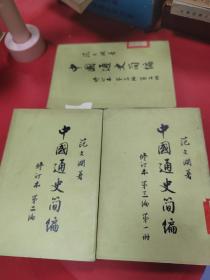 范文澜著
中國通史简编
修订本 第三编 第二册
范文澜著
中國通史简编
修订本 第二编
范文澜著
中國通史简编
修订本 第三编 第一册